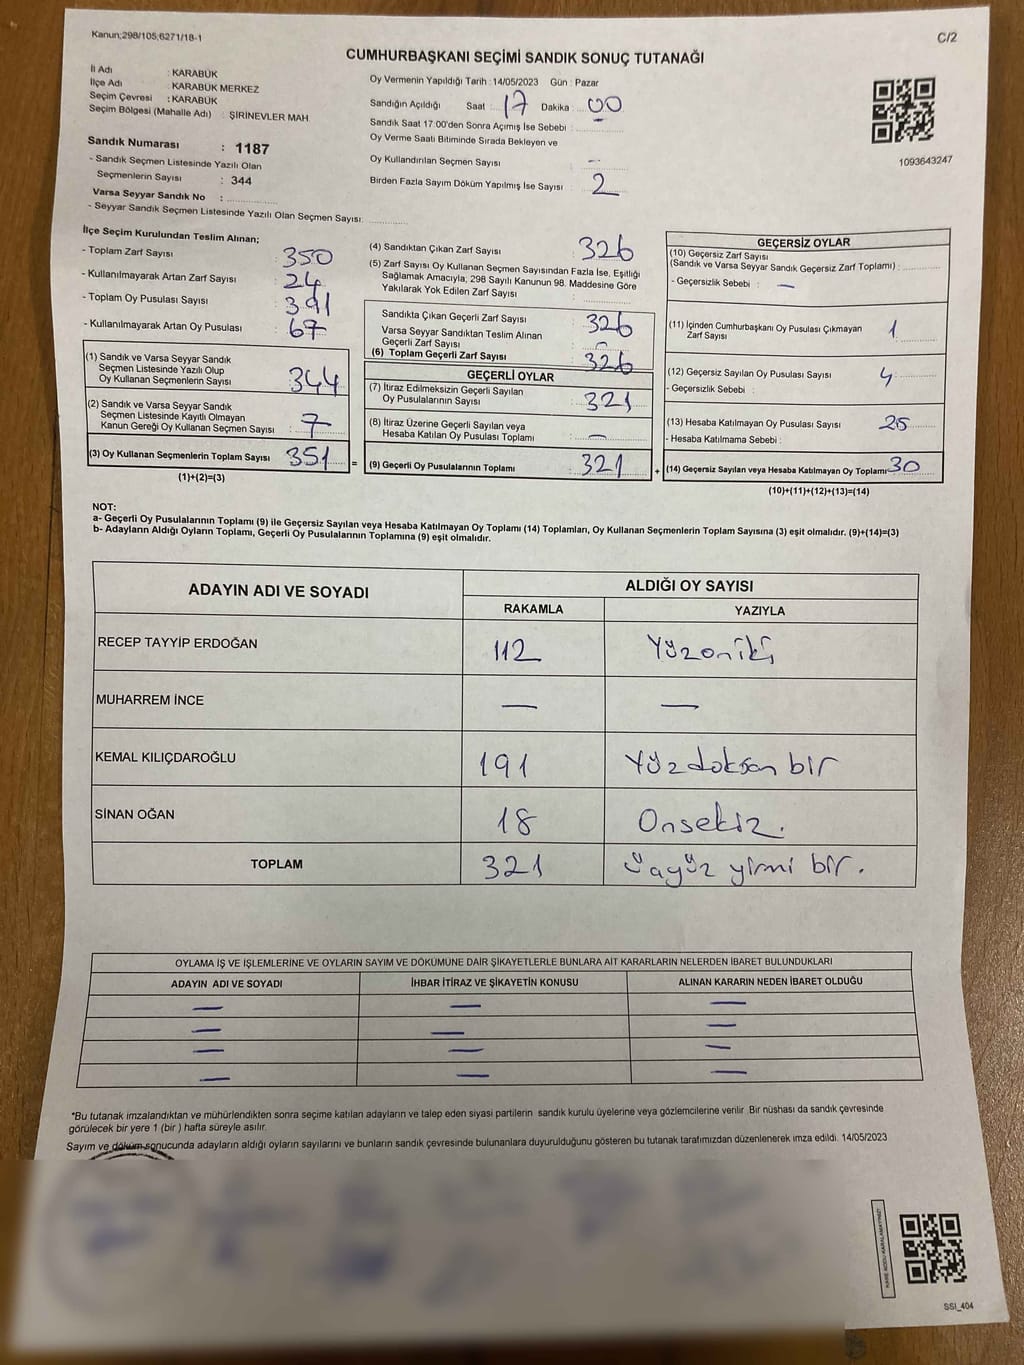 Kanun;298/105;6271/18-1
C/2
CUMHURBAŞKANI SEÇİMİ SANDIK SONUÇ TUTANAĞI
İl Adı : KARABÜK
İlçe Adı : KARABÜK MERKEZ
Seçim Çevresi : KARABÜK
Seçim Bölgesi (Mahalle Adı) : ŞİRİNEVLER MAH
Sandık Numarası : 1187
- Sandık Seçmen Listesinde Yazılı Olan
Seçmenlerin Sayısı : 344
Varsa Seyyar Sandık No :
- Seyyar Sandık Seçmen Listesinde Yazılı Olan Seçmen Sayısı:
Oy Vermenin Yapıldığı Tarih : 14/05/2023 Gün : Pazar
Sandığın Açıldığı Saat : 17 Dakika : 00
Sandık Saat 17:00'den Sonra Açımış İse Sebebi :
Oy Verme Saati Bitiminde Sırada Bekleyen ve
Oy Kullandırılan Seçmen Sayısı : -
Birden Fazla Sayım Döküm Yapılmış İse Sayısı : 2
1093643247
İlçe Seçim Kurulundan Teslim Alınan;
- Toplam Zarf Sayısı : 350
- Kullanılmayarak Artan Zarf Sayısı : 24
- Toplam Oy Pusulası Sayısı : 391
- Kullanılmayarak Artan Oy Pusulası : 67
(1) Sandık ve Varsa Seyyar Sandık
Seçmen Listesinde Yazılı Olup
Oy Kullanan Seçmenlerin Sayısı : 344
(2) Sandık ve Varsa Seyyar Sandık
Seçmen Listesinde Kayıtlı Olmayan
Kanun Gereği Oy Kullanan Seçmen Sayısı : 7
(3) Oy Kullanan Seçmenlerin Toplam Sayısı : 351
(1)+(2)=(3)
(4) Sandıktan Çıkan Zarf Sayısı : 326
(5) Zarf Sayısı Oy Kullanan Seçmen Sayısından Fazla İse, Eşitliği
Sağlamak Amacıyla, 298 Sayılı Kanunun 98. Maddesine Göre
Yakılarak Yok Edilen Zarf Sayısı :
Sandıkta Çıkan Geçerli Zarf Sayısı : 326
Varsa Seyyar Sandıktan Teslim Alınan
Geçerli Zarf Sayısı : -
(6) Toplam Geçerli Zarf Sayısı : 326
GEÇERLİ OYLAR
(7) İtiraz Edilmeksizin Geçerli Sayılan
Oy Pusulalarının Sayısı : 321
(8) İtiraz Üzerine Geçerli Sayılan veya
Hesaba Katılan Oy Pusulası Toplamı : -
= (9) Geçerli Oy Pusulalarının Toplamı : 321 +
GEÇERSİZ OYLAR
(10) Geçersiz Zarf Sayısı
(Sandık ve Varsa Seyyar Sandık Geçersiz Zarf Toplamı) :
- Geçersizlik Sebebi : -
(11) İçinden Cumhurbaşkanı Oy Pusulası Çıkmayan
Zarf Sayısı : 1
(12) Geçersiz Sayılan Oy Pusulası Sayısı : 4
- Geçersizlik Sebebi :
(13) Hesaba Katılmayan Oy Pusulası Sayısı : 25
- Hesaba Katılmama Sebebi :
(14) Geçersiz Sayılan veya Hesaba Katılmayan Oy Toplamı : 30
(10)+(11)+(12)+(13)=(14)
NOT:
a- Geçerli Oy Pusulalarının Toplamı (9) ile Geçersiz Sayılan veya Hesaba Katılmayan Oy Toplamı (14) Toplamları, Oy Kullanan Seçmenlerin Toplam Sayısına (3) eşit olmalıdır. (9)+(14)=(3)
b- Adayların Aldığı Oyların Toplamı, Geçerli Oy Pusulalarının Toplamına (9) eşit olmalıdır.
ADAYIN ADI VE SOYADI ALDIĞI OY SAYISI
RAKAMLA YAZIYLA
RECEP TAYYİP ERDOĞAN 112 Yüzoniki
MUHARREM İNCE — —
KEMAL KILIÇDAROĞLU 191 Yüzdoksan bir
SİNAN OĞAN 18 Onsekiz.
TOPLAM 321 üçyüz yirmi bir.
OYLAMA İŞ VE İŞLEMLERİNE VE OYLARIN SAYIM VE DÖKÜMÜNE DAİR ŞİKAYETLERLE BUNLARA AİT KARARLARIN NELERDEN İBARET BULUNDUKLARI
ADAYIN ADI VE SOYADI İHBAR İTİRAZ VE ŞİKAYETİN KONUSU ALINAN KARARIN NEDEN İBARET OLDUĞU
— — —
— — —
— — —
— — —
*Bu tutanak imzalandıktan ve mühürlendikten sonra seçime katılan adayların ve talep eden siyasi partilerin sandık kurulu üyelerine veya gözlemcilerine verilir. Bir nüshası da sandık çevresinde
görülecek bir yere 1 (bir ) hafta süreyle asılır.
Sayım ve döküm sonucunda adayların aldığı oyların sayılarını ve bunların sandık çevresinde bulunanlara duyurulduğunu gösteren bu tutanak tarafımızdan düzenlenerek imza edildi. 14/05/2023
KARE KODU KARALAMAYINIZ!
SSI_404